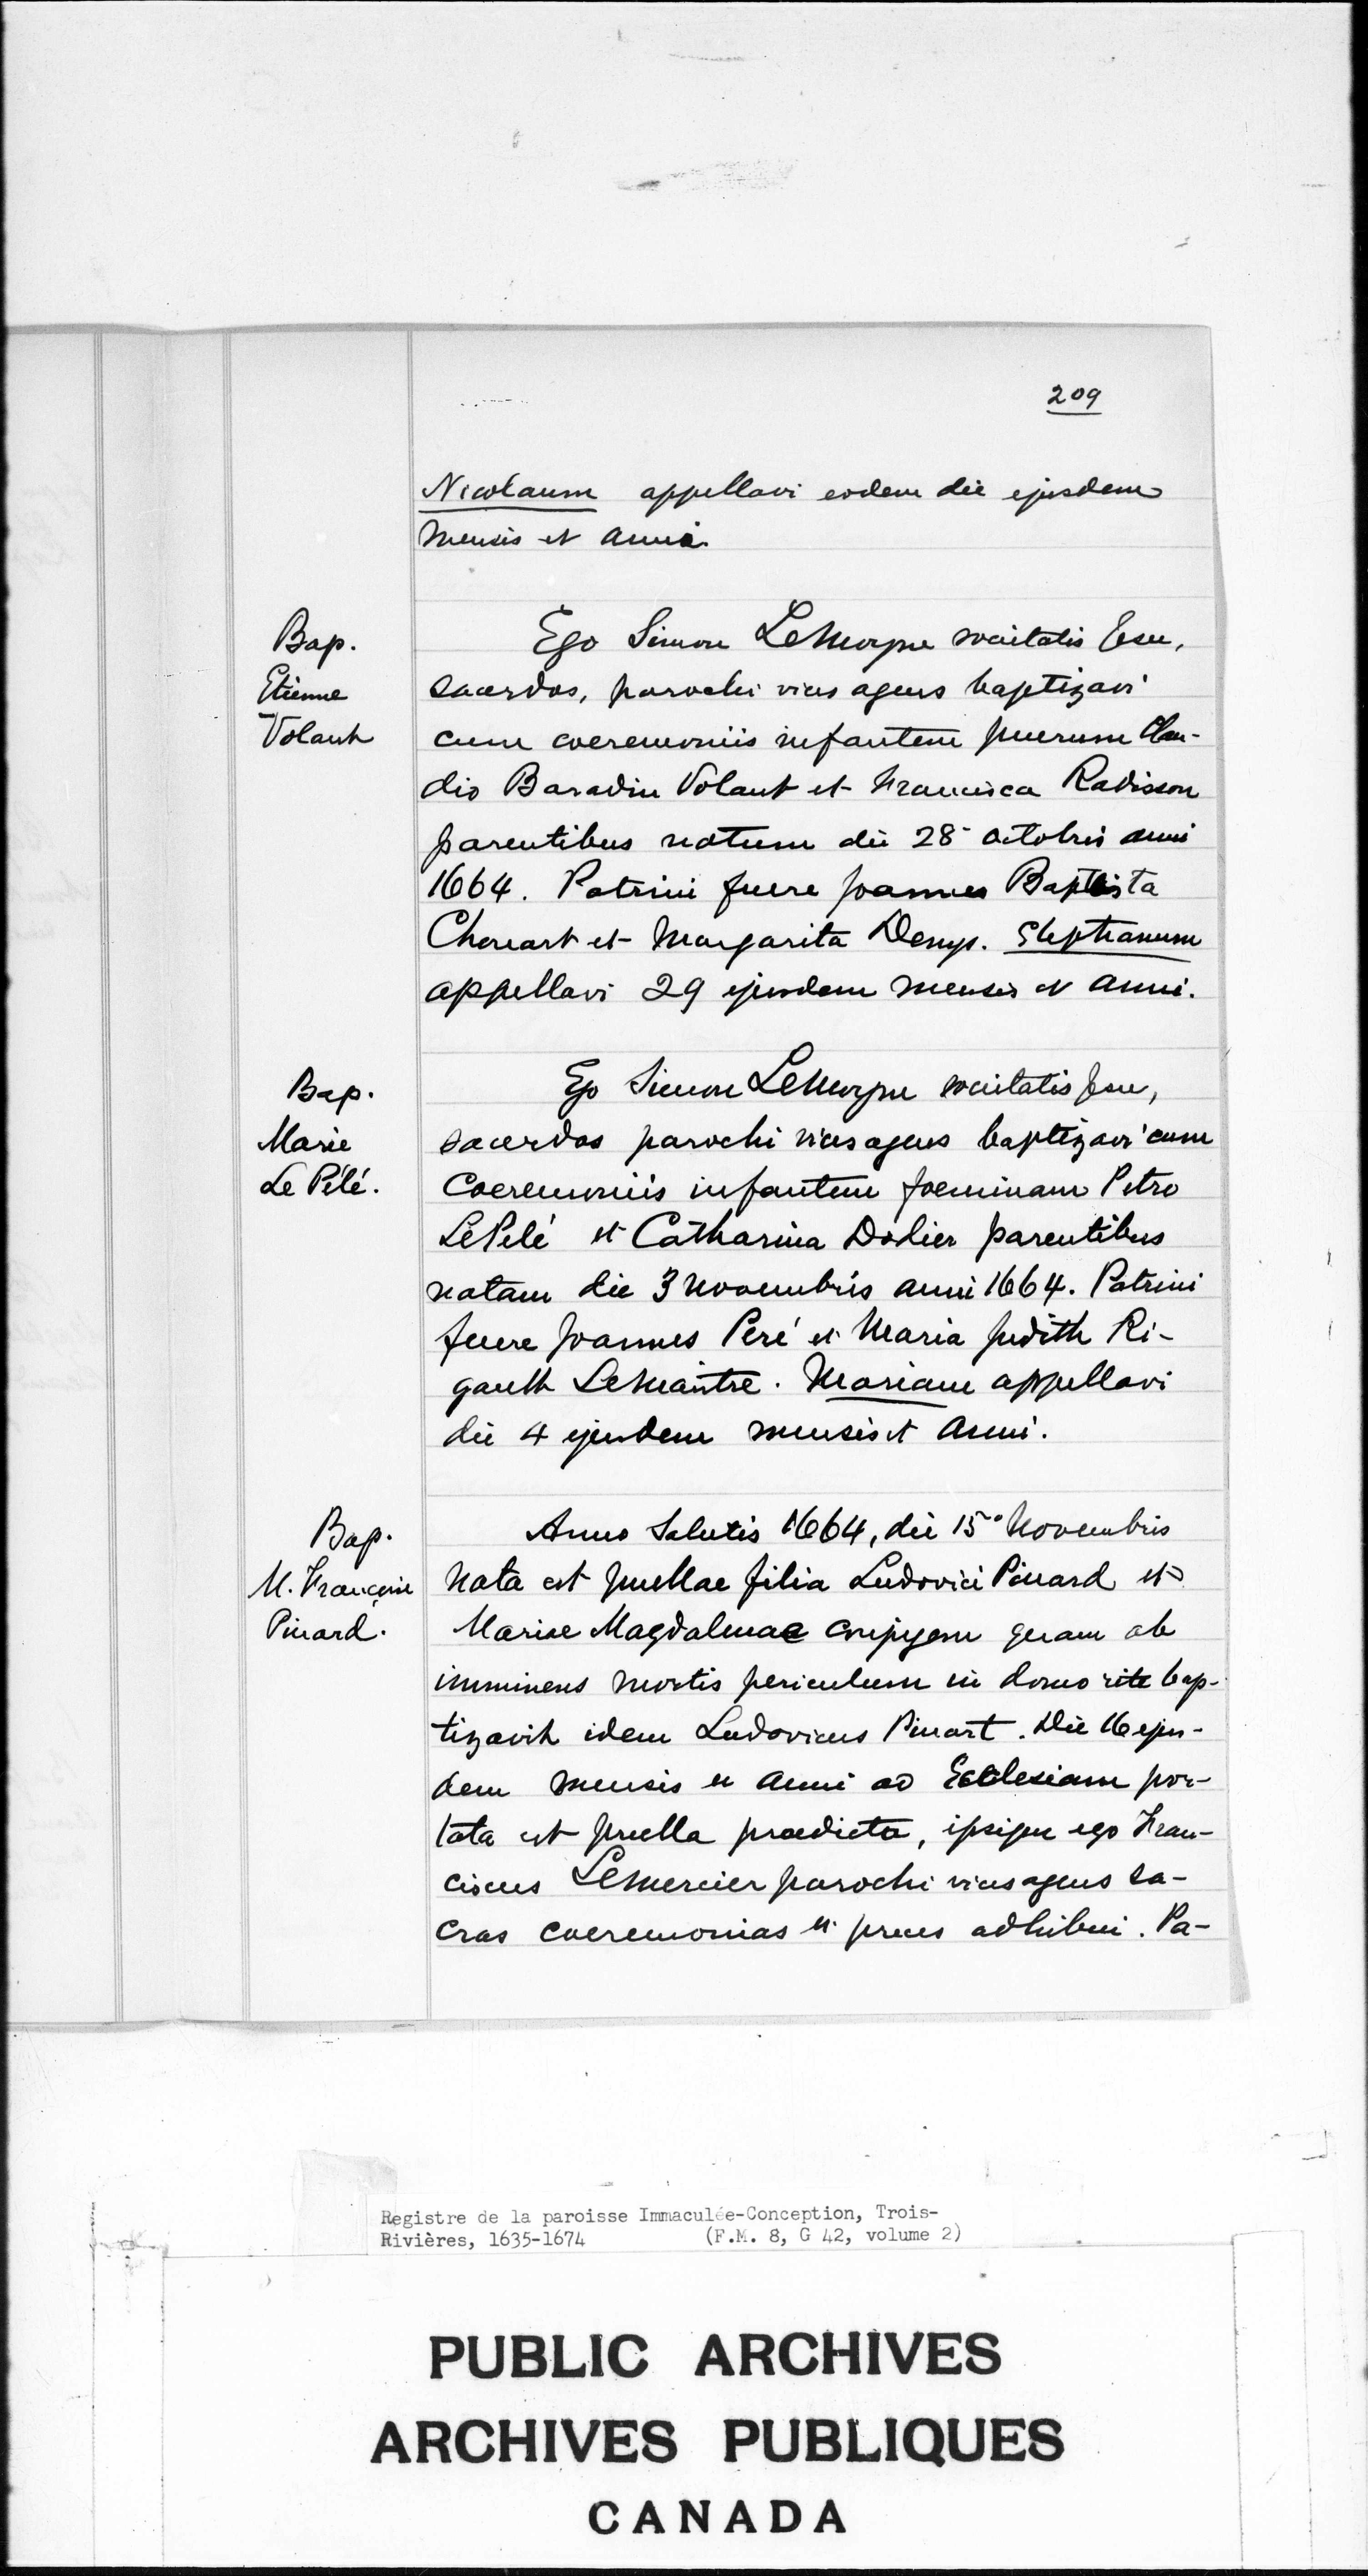 209
Nicolaum appellavi eodem die ejusdem
mensis et anni.
Bap.
Etienne
Volant
Ego Simon LeMoyne societatis Jesu,
sacerdos, parochi vices agens baptizavi
cum coeremoniis infantem puerum Clau-
dio Baradin Volant et Francisca Radisson
parentibus natum die 28a octobris anni
1664. Patrini fuere Joannes Baptista
Chouart et Margarita Denys. Stephanum
appellavi 29 ejusdem mensis et anni.
Bap.
Marie
Le Pélé.
Ego Simon LeMoyne societatis Jesu,
sacerdos parochi vices agens baptizavi cum
Coeremoniis infantem foeminam Petro
LePelé et Catharina Dodier parentibus
natam die 3 Novembris anni 1664. Patrini
fuere Joannes Peré et Maria Judith Ri-
gault LeMaître. Mariam appellavi
die 4 ejusdem mensis et anni.
Bap.
M. Françoise
Pinard.
Anno Salutis 1664, die 15o Novembris
Nata est puellae filia Ludovici Pinard et
Mariae Magdalenae conjugem quam ob
imminens mortis periculum in domo rite bap-
tizavit idem Ludovicus Pinart. Die 16 ejus-
dem mensis et anni ad Ecclesiam por-
tata est puella praedicta, ipsique ego Fran-
ciscus LeMercier parochi vices agens sa-
cras coeremonias et preces adhibui. Pa-
Registre de la paroisse Immaculée-Conception, Trois-
Rivières, 1635-1674 (F.M. 8, G 42, volume 2)
PUBLIC ARCHIVES
ARCHIVES PUBLIQUES
CANADA